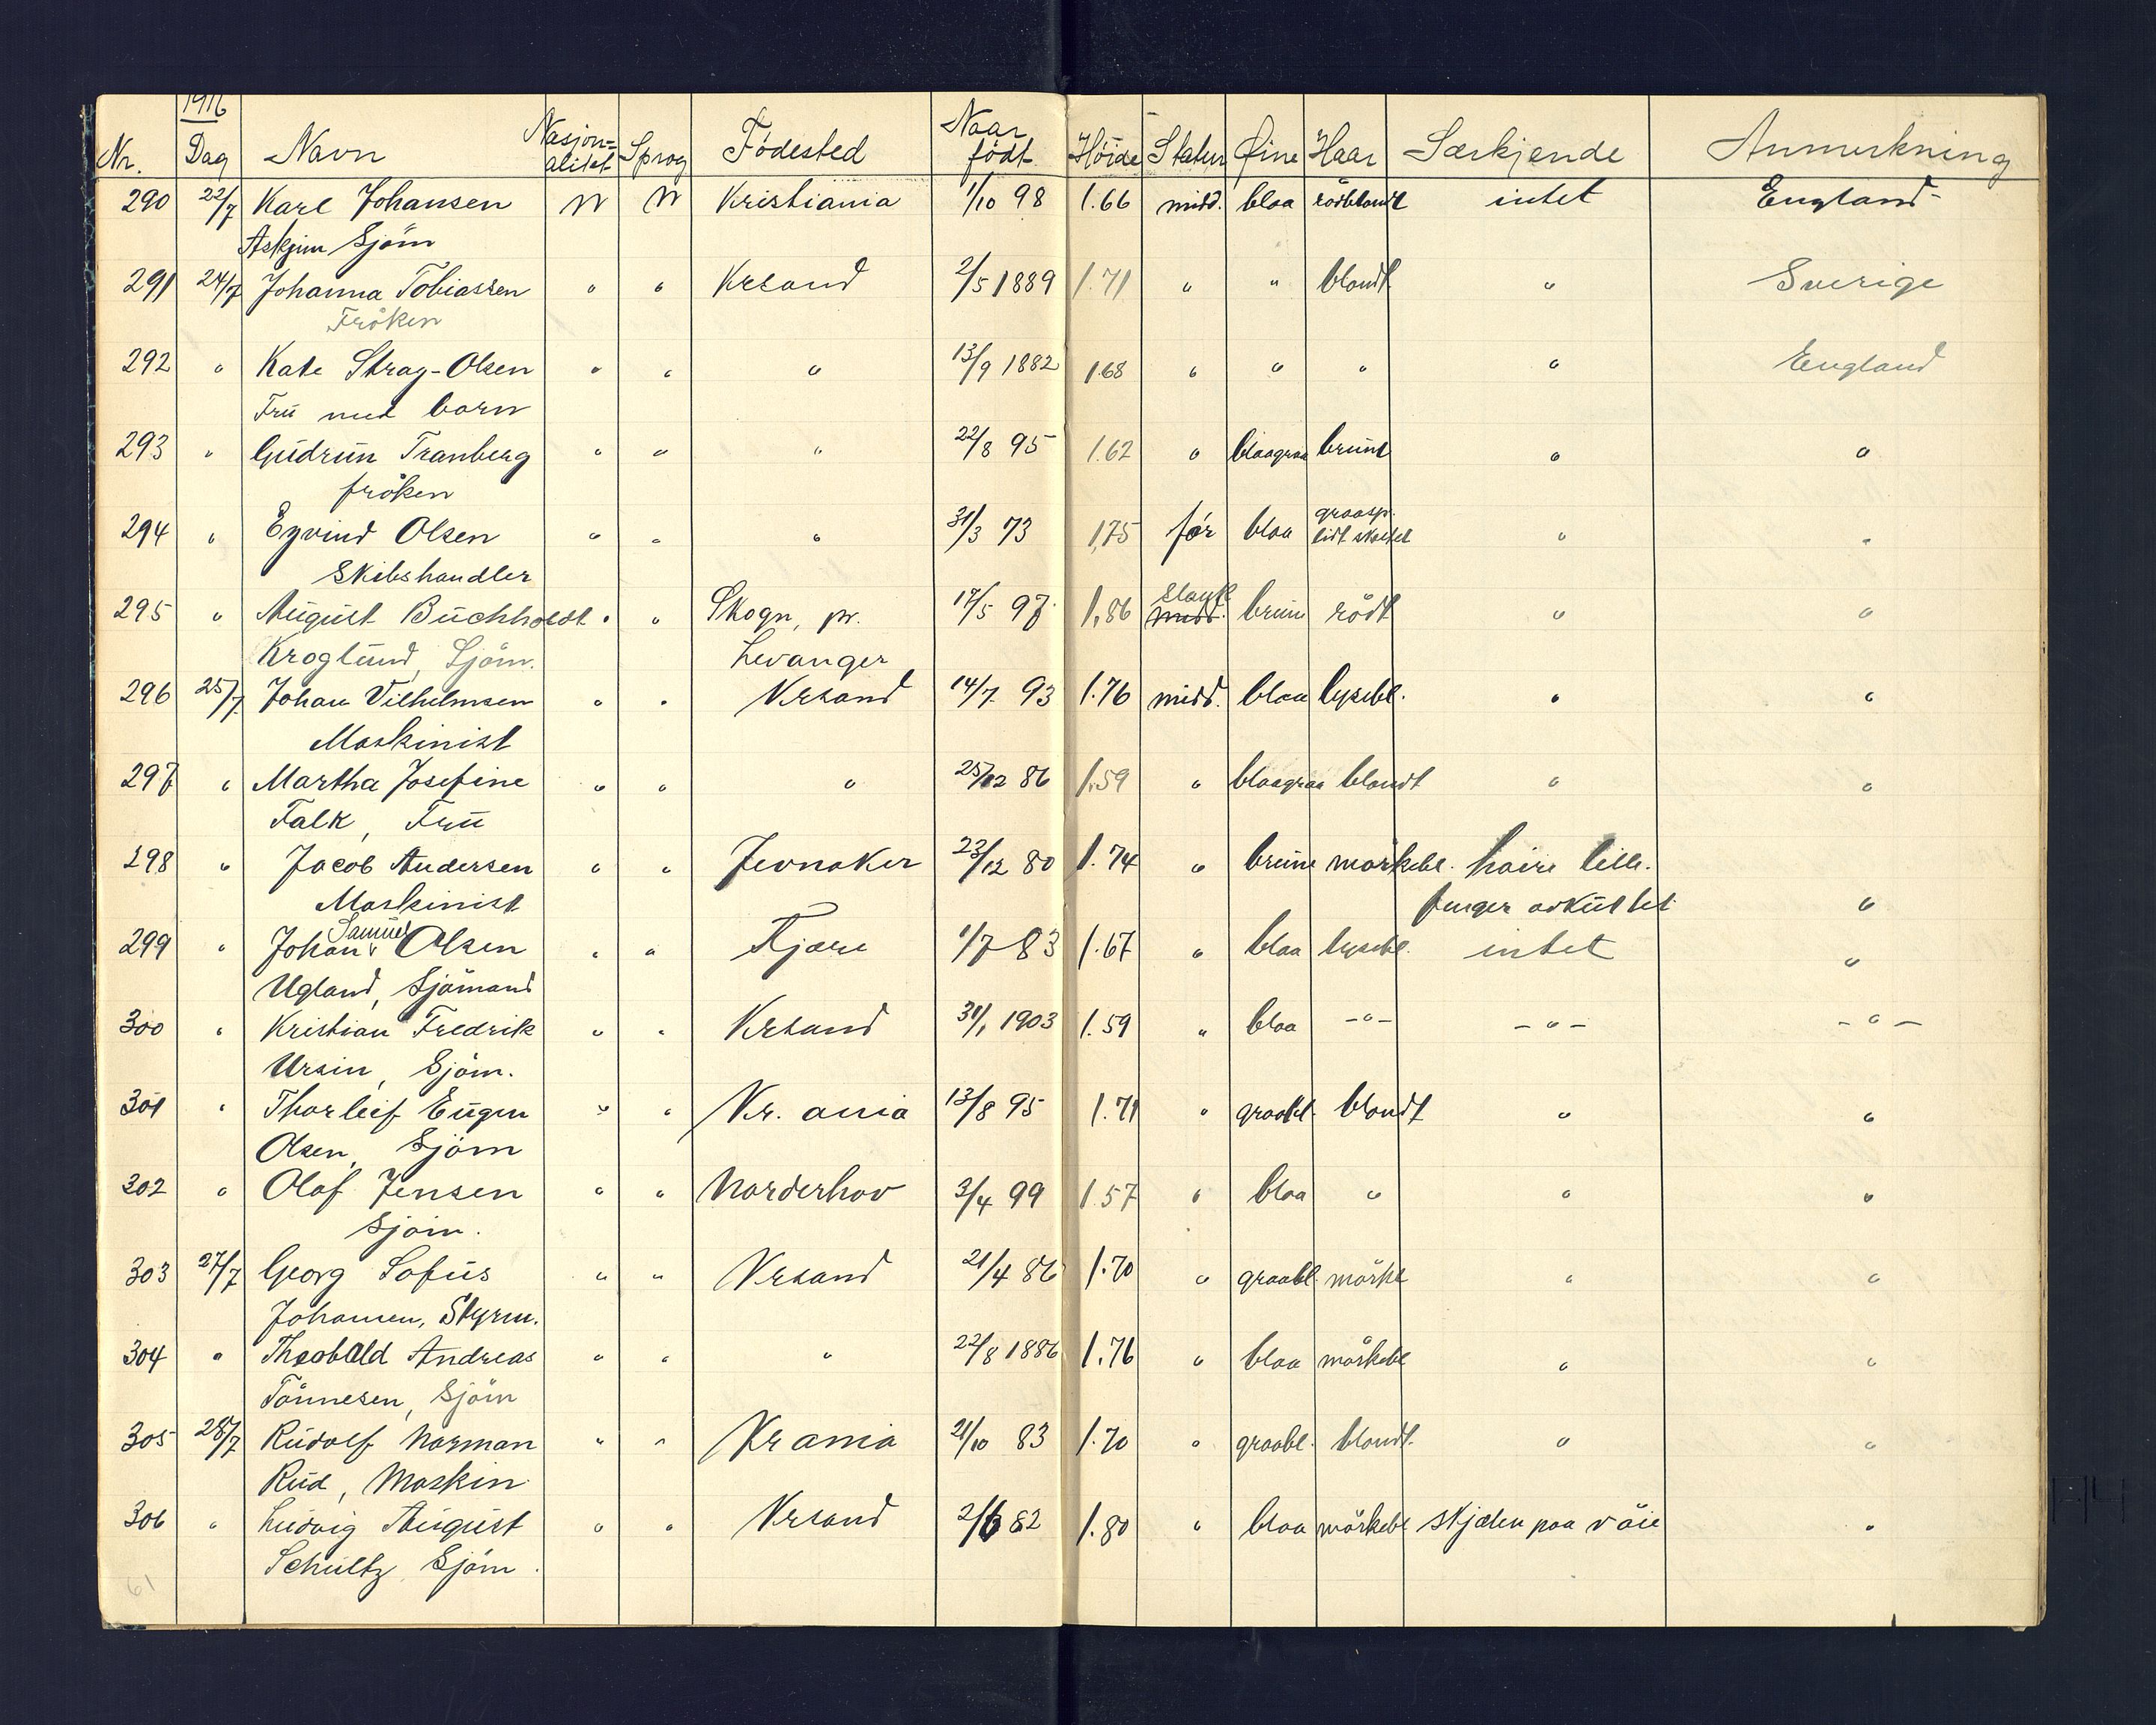 1916
Nr. Dag Navn Nasjon=alitet Sprog Födested Naar födt Höide Statur Öine Haar Særkjende Anmerkning
290 22/7 Karl Johansen N N Kristiania 1/10 98 1.66 midd. blaa rödblondt intet England
Askjim Sjöm
291 24/7 Johanna Tobiassen " " Krsand 2/5 1889 1.71 " " blondt " Sverige
Fröken
292 " Kate Stray-Olsen " " " 13/9 1882 1.68 " " " " England
Fru med barn
293 " Gudrun Tranberg " " " 22/8 95 1.62 " blaagraa brunt " "
fröken
294 " Eyvind Olsen " " " 31/3 73 1,75 før blaa graasp. lidt skaldet " "
Skibshandler
295 " August Buchholdt " " Skogn, pr. 17/5 97 1,86 slank midd. brune rödt " "
Kroglund, Sjöm. Levanger
296 25/7 Johan Vilhelmsen " " Krsand 14/7 93 1.76 midd. blaa lysebl. " "
Maskinist
297 " Martha Josefine " " " 25/12 86 1.59 " blaagraa blondt " "
Falk, Fru
298 " Jacob Andersen " " Jevnaker 23/12 80 1.74 " brune mörkebl. höire lille.
Maskinist finger avkuttet "
299 " Johan Samuel Olsen " " Fjære 1/7 83 1.67 " blaa lysebl. intet "
Ugland, Sjömand
300 " Kristian Fredrik " " Krsand 31/1 1903 1.59 " blaa -"- -"- -"-
Ursin, Sjöm.
301 " Thorleif Eugen " " Kr. ania 13/8 95 1.71 " graabl. blondt " "
Olsen, Sjöm
302 " Olaf Jensen " " Norderhov 3/4 99 1.57 " blaa " " "
Sjöm.
303 27/7 Georg Sofus " " Krsand 21/4 86 1.70 " graabl. mörkt " "
Johansen, Styrm.
304 " Theobald Andreas " " " 22/8 1886 1.76 " blaa mörkebl " "
Tönnesen, Sjöm
305 28/7 Rudolf Norman " " Krania 21/10 83 1.70 " graabl. blondt. " "
Rud, Maskin
306 " Ludvig August " " Krsand 2/6 82 1.80 " blaa mörkebl skjelen paa v öie "
Schultz, Sjöm.
61